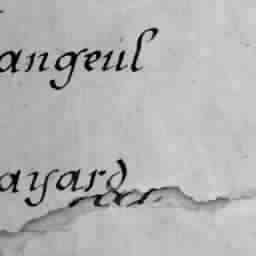 angeul
ayard